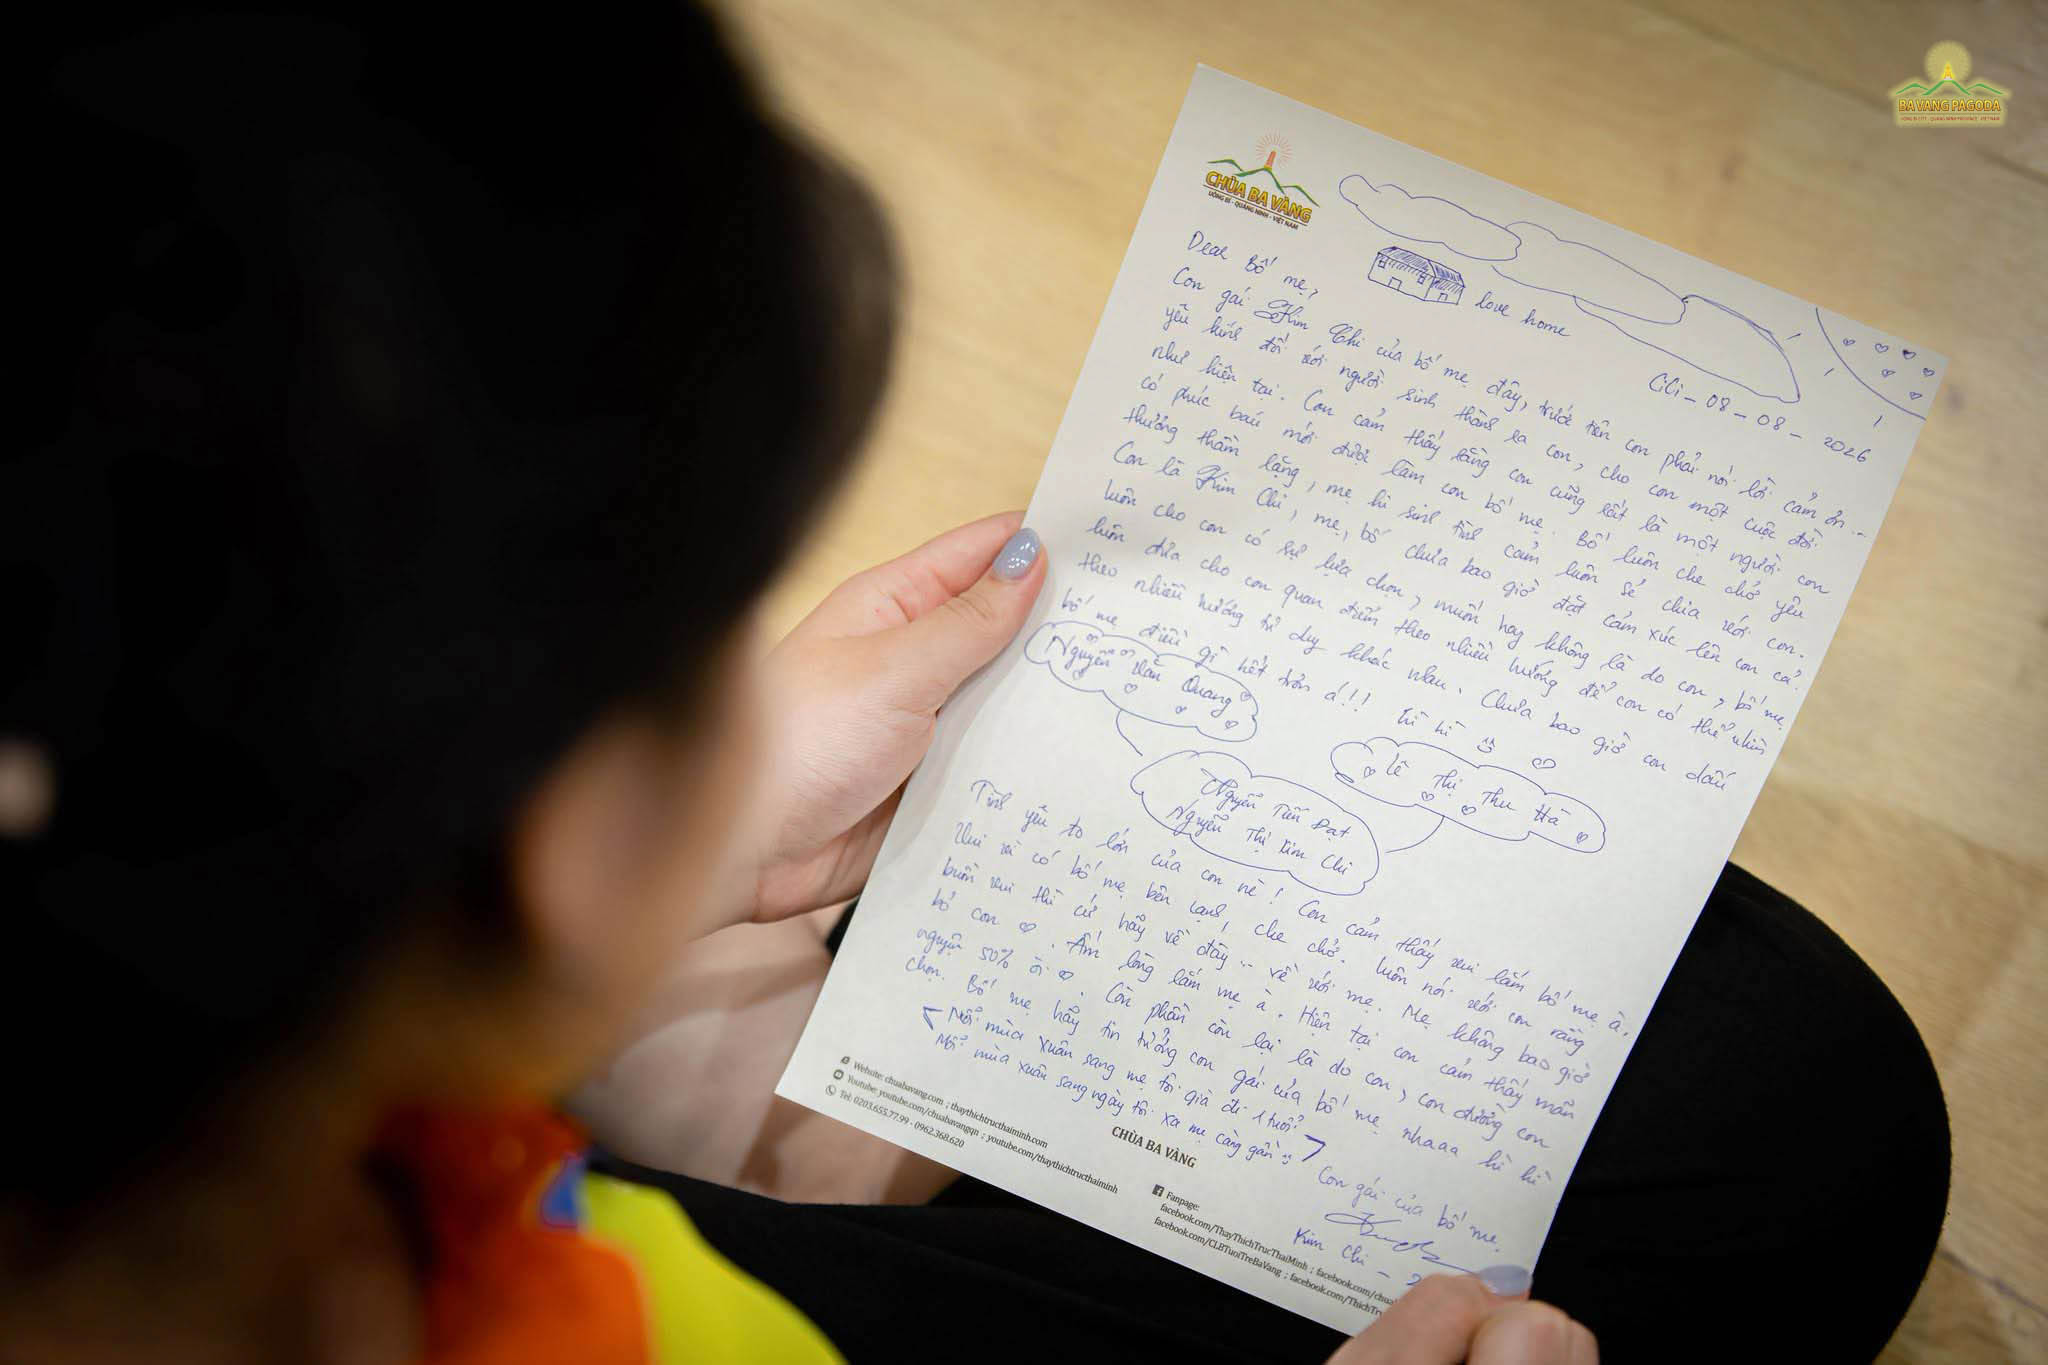 BA VANG PAGODA
UÔNG BÍ CITY - QUANG NINH PROVINCE - VIETNAM
CHÙA BA VÀNG
UÔNG BÍ - QUẢNG NINH - VIỆT NAM
love home
CiCi - 08 - 08 - 2026
Dear Bố mẹ,
Con gái Kim Chi của bố mẹ đây, trước tiên con phải nói lời cảm ơn
yêu kính đối với người sinh thành ra con, cho con một cuộc đời
như hiện tại. Con cảm thấy rằng con cũng rất là một người con
có phúc báu mới được làm con bố mẹ. Bố luôn che chở yêu
thương thầm lặng, mẹ hi sinh tình cảm luôn sẻ chia với con.
Con là Kim Chi, mẹ, bố chưa bao giờ đặt cảm xúc lên con cả.
luôn cho con có sự lựa chọn, muốn hay không là do con, bố mẹ
luôn đưa cho con quan điểm theo nhiều hướng để con có thể nhìn
theo nhiều hướng tư duy khác nhau. Chưa bao giờ con dấu
bố mẹ điều gì hết trơn á!!! hì hì
Nguyễn Văn Quang
Lê Thị Thu Hà
Nguyễn Tiến Đạt
Nguyễn Thị Kim Chi
Tình yêu to lớn của con nè! Con cảm thấy vui lắm bố mẹ à.
Vui vì có bố mẹ bên cạnh, che chở. Luôn nói với con rằng
buồn vui thì cứ hãy về đây .. về với mẹ. Mẹ không bao giờ
bỏ con. Ấm lòng lắm mẹ à. Hiện tại con cảm thấy mãn
nguyện 50% òi. Còn phần còn lại là do con, con đường con
chọn. Bố mẹ hãy tin tưởng con gái của bố mẹ nhaaa hì hì
< Mỗi mùa xuân sang mẹ tôi già đi 1 tuổi
Mỗi mùa xuân sang ngày tôi xa mẹ càng gần >
Con gái của bố mẹ.
Kim Chi -
CHÙA BA VÀNG
Website: chuabavang.com ; thaythichtructhaiminh.com
Youtube: youtube.com/chuabavangqn ; youtube.com/thaythichtructhaiminh
Tel: 0203.655.77.99 - 0962.368.620
Fanpage:
facebook.com/ThayThichTrucThaiMinh ; facebook.com/chua
facebook.com/CLBTuoiTreBaVang ; facebook.com/ThichTr